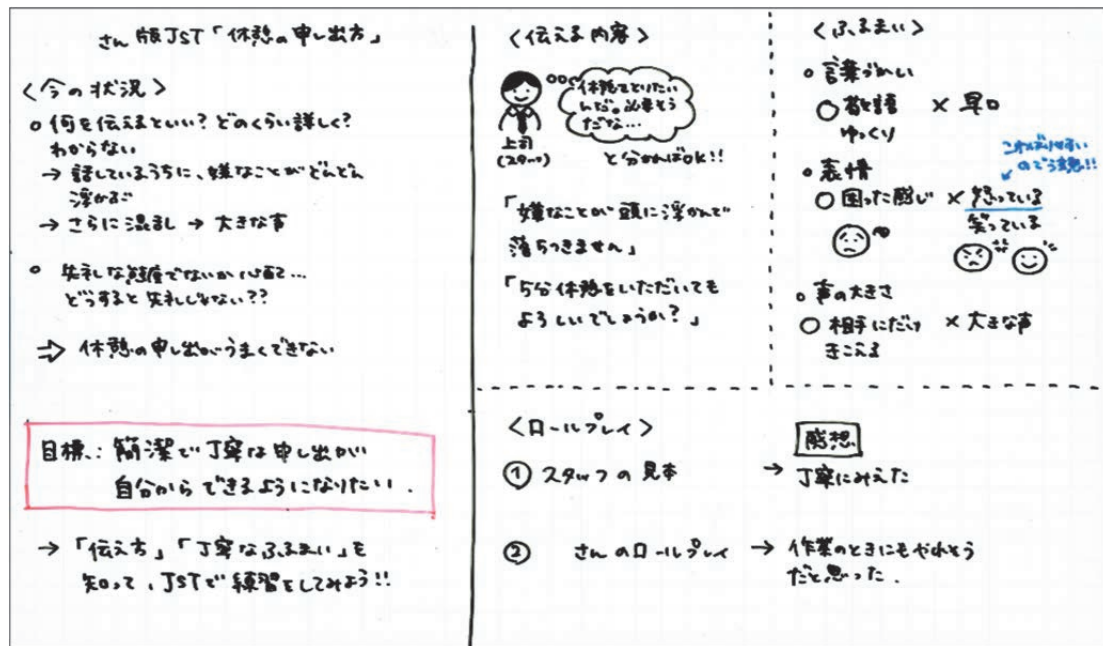 さん 版JST「休憩の申し出方」
〈今の状況〉
○ 何を伝えるといい？どのくらい詳しく？
わからない
→ 話しているうちに、嫌なことがどんどん
浮かぶ
→ さらに混乱 → 大きな声
○ 失礼な態度でないか心配…
どうすると失礼じゃない？？
⇒ 休憩の申し出がうまくできない
目標：簡潔で丁寧な申し出が
自分からできるようになりたい.
→「伝え方」「丁寧なふるまい」を
知って、JSTで練習をしてみよう!!
〈伝える内容〉
休憩とりたい
んだ。必要そう
だな…
上司
(スタッフ)
と分かればOK!!
「嫌なことが頭に浮かんで
落ちつきません」
「5分休憩をいただいても
よろしいでしょうか？」
〈ふるまい〉
○ 言葉づかい
○ 敬語 × 早口
ゆっくり
こわばりやすい
ので注意!!
○ 表情
○ 困った感じ × 怒っている
笑っている
○ 声の大きさ
○ 相手にだけ × 大きな声
きこえる
〈ロールプレイ〉
感想
① スタッフの見本 → 丁寧にみえた
② さんのロールプレイ → 作業のときにもやれそう
だと思った.